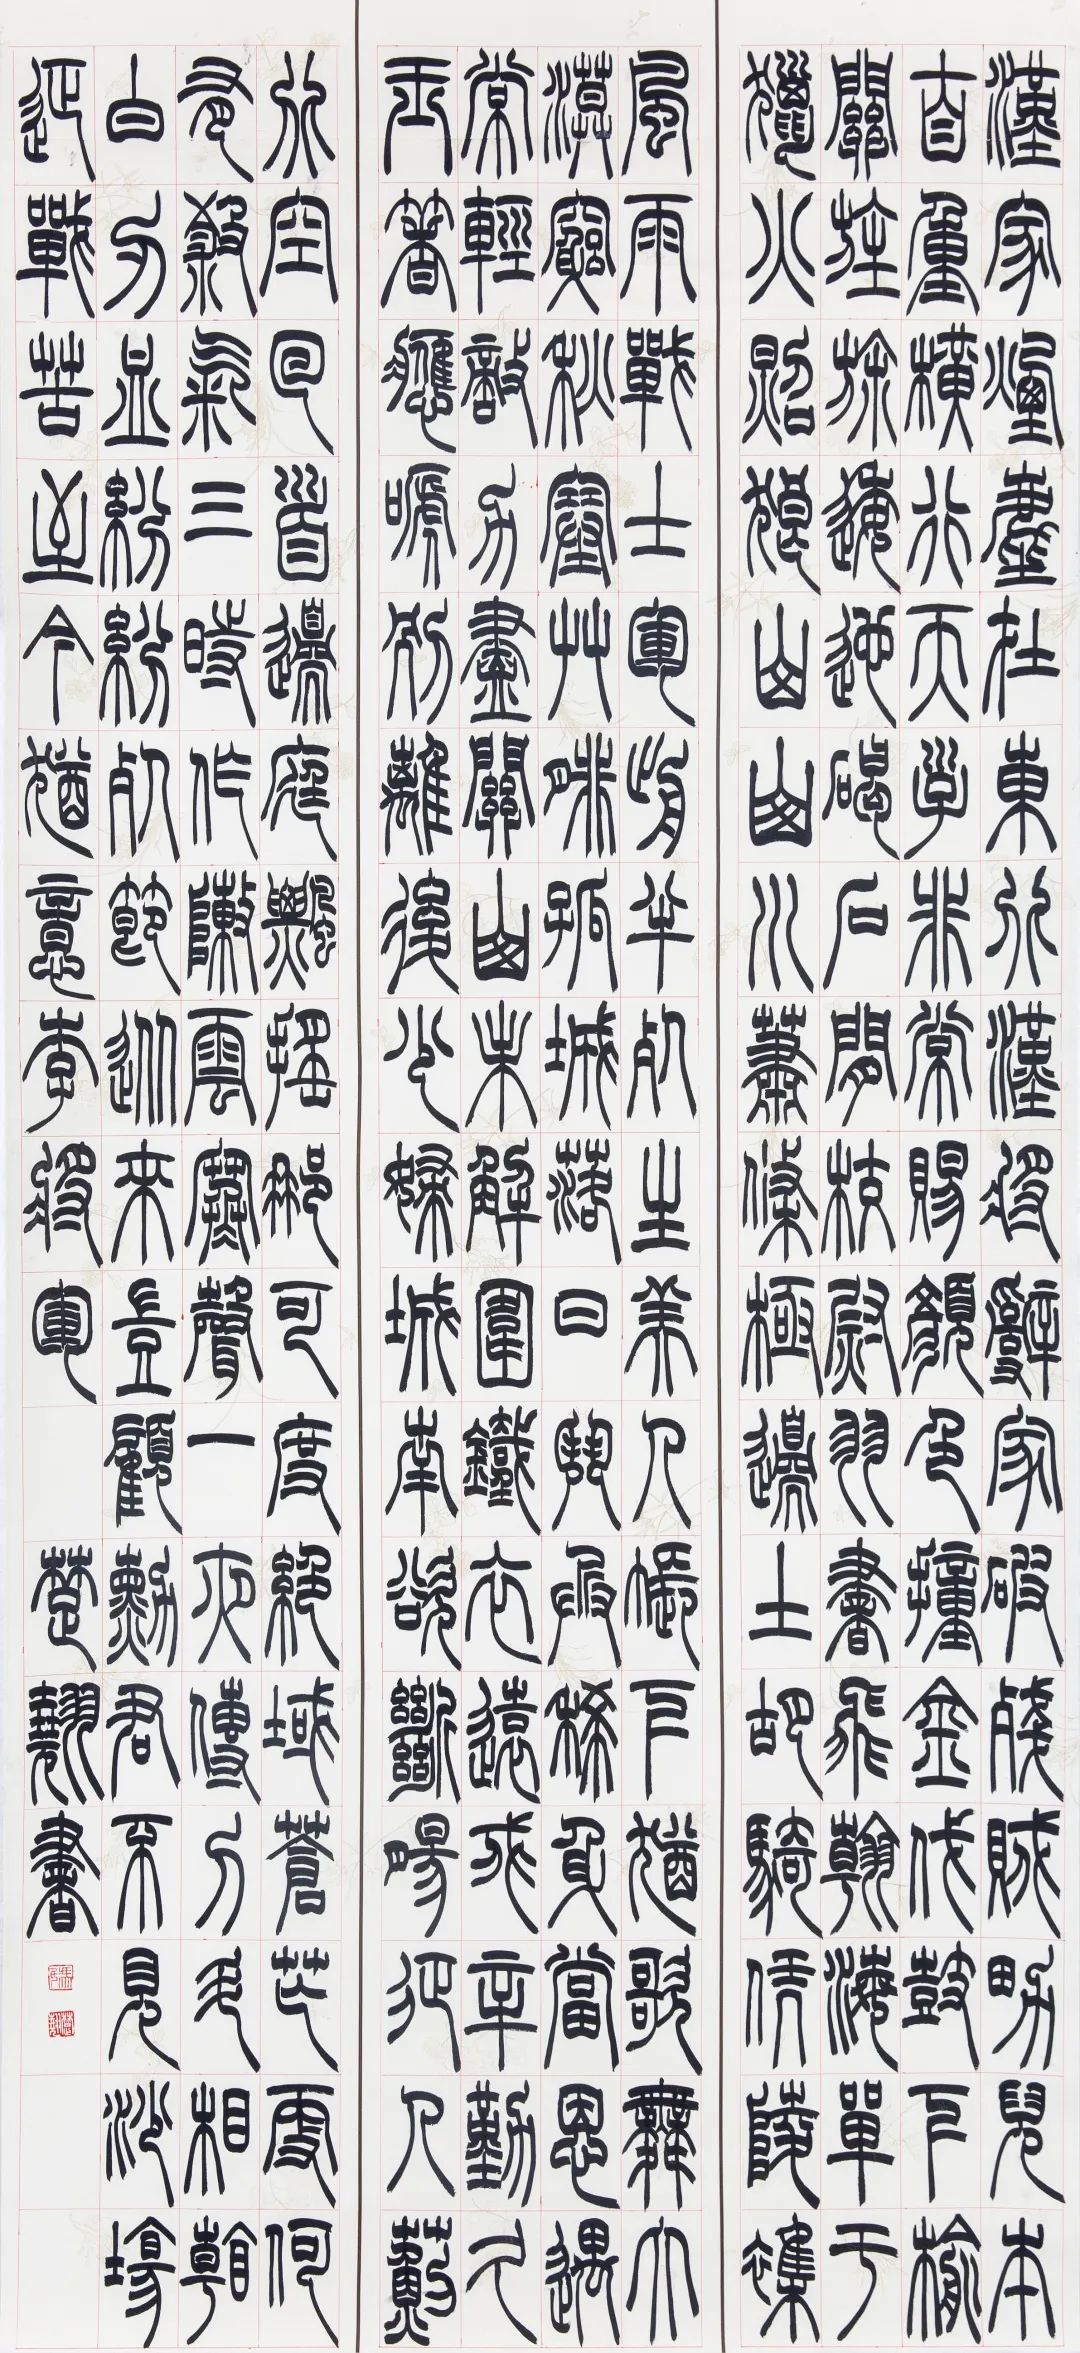 漢家煙塵在東北漢將辭家破殘賊男兒本
自重橫行天子非常賜顏色撞金伐鼓下榆
關旌旆逶迤碣石間校尉羽書飛翰海單于
獵火照狼山山川蕭條極邊土胡騎憑陵雜
風雨戰士軍前半死生美人帳下猶歌舞大
漠窮秋塞草腓孤城落日鬥兵稀身當恩遇
常輕敵力盡關山未解圍鐵衣遠戍辛勤久
玉箸應嗁別離後少婦城南欲斷腸征人薊
北空回首邊庭飄搖那可度絕域蒼茫更何
有殺氣三時作陣雲寒聲一夜傳刁斗相看
白刃血紛紛死節從來豈顧勳君不見沙場
征戰苦至今猶意李將軍 楚翔書